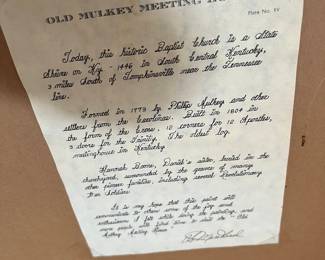 OLD MULKEY MEETING
Plate No. XV
Today, this historic Baptist Church is a State
Shrine on Ky - 1446 in South Central Kentucky,
3 miles South of Tompkinsville near the Tennessee
line.
Formed in 1773 by Philip Mulkey and other
settlers from the Carolinas. Built in 1804 in
the form of the Cross, 12 corners for 12 Apostles,
3 doors for the Trinity. The oldest log
meetinghouse in Kentucky.
Hannah Boone, Daniel's sister, buried in the
churchyard, surrounded by the graves of many
other pioneer families, including several Revolutionary
War Soldiers.
It is my hope that this print will
communicate to others some of the joy and
enthusiasm I felt while doing the painting, and
more people will find time to visit the "Old
Mulkey Meeting House